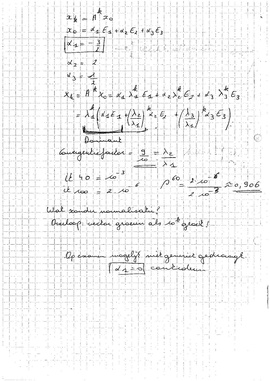 x_k = A^k x_0
x_0 = α_1 E_1 + α_2 E_2 + α_3 E_3
α_1 = -3/2
α_2 = 2
α_3 = 1/2
x_k = A^k x_0 = α_1 λ_1^k E_1 + α_2 λ_2^k E_2 + α_3 λ_3^k E_3
= λ_1^k (α_1 E_1 + (λ_2/λ_1)^k α_2 E_2 + (λ_3/λ_1)^k α_3 E_3)
Dominant
Convergentiefactor = 9/10 = λ_2/λ_1
it 40 = 10^-3
it 100 = 2 10^-6 ρ^60 = 2 10^-6 / 2 10^-3 ≈ 0,906
Wat zonder normalisatie?
Overloop, vector groeien als 10^k groot!
Op examen mogelijk niet gewenst gedraagt
α_1 = 0 controleren